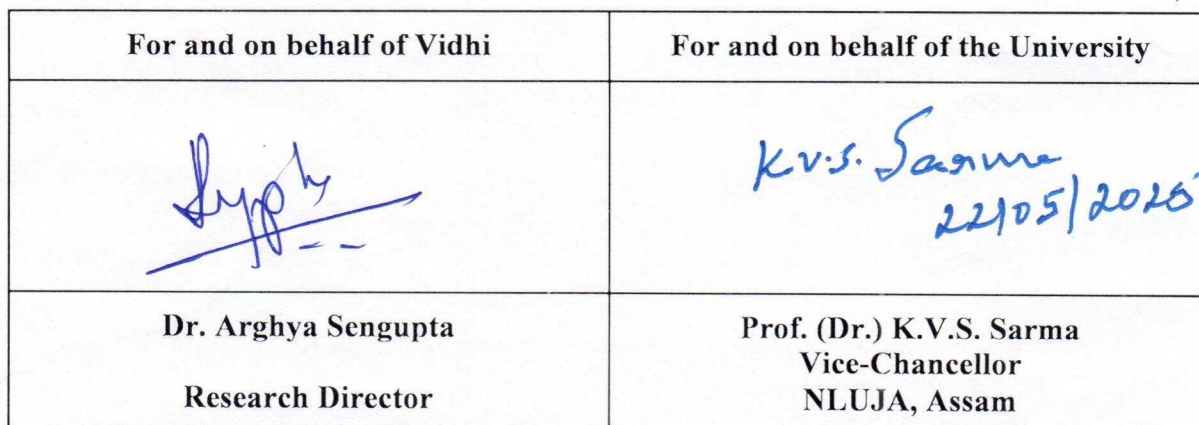 For and on behalf of Vidhi
For and on behalf of the University
K.V.S. Sarma
22/05/2025
Dr. Arghya Sengupta
Research Director
Prof. (Dr.) K.V.S. Sarma
Vice-Chancellor
NLUJA, Assam